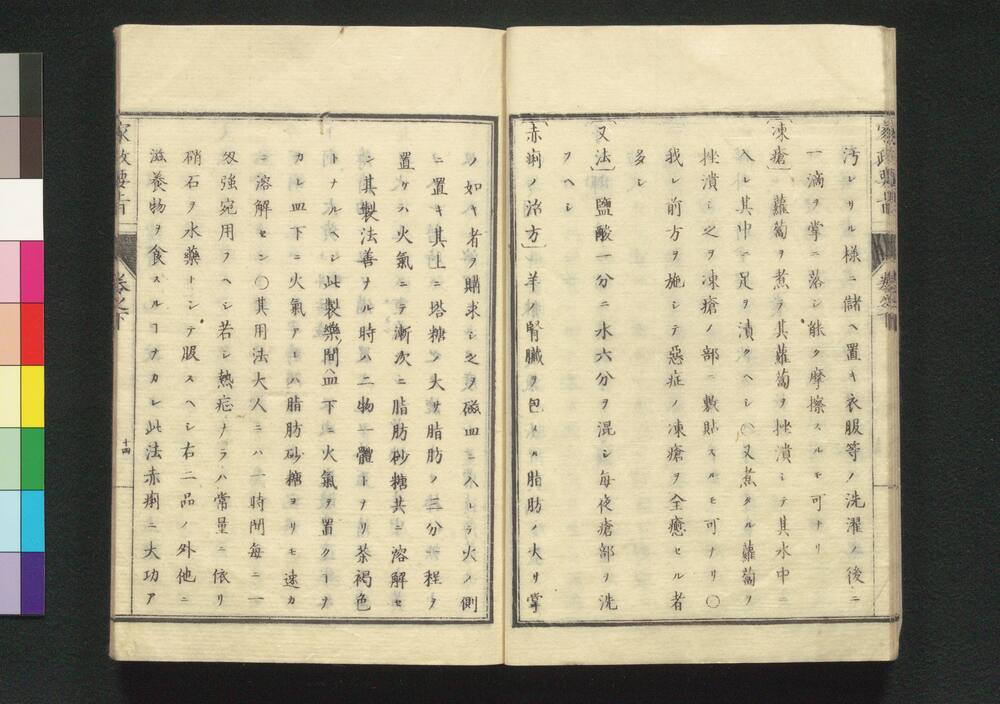 家政要旨
巻之下
汚レサル様ニ儲ヘ置キ衣服等ノ洗濯ノ後ニ
一滴ヲ掌ニ落シ能ク摩擦スルモ可ナリ
〔凍瘡〕蘿蔔ヲ煮テ其蘿蔔ヲ挫潰シテ其水中ニ
入レ其中ニ足ヲ漬クヘシ〇又煮タル蘿蔔ヲ
挫潰シ之ヲ凍瘡ノ部ニ敷貼スルモ可ナリ〇
我レ前方ヲ施シテ惡症ノ凍瘡ヲ全癒セル者
多シ
〔又法〕鹽酸一分ニ水六分ヲ混シ毎夜瘡部ヲ洗
フヘシ
〔赤痢ノ治方〕羊ノ腎臟ヲ包メル脂肪ノ大サ掌
ノ如キ者ヲ購求シ之ヲ磁皿ニ入レテ火ノ側
ニ置キ其上ニ塔糖ノ大サ脂肪ノ三分一程ヲ
置ケハ火氣ニテ漸次ニ脂肪砂糖共ニ溶解セ
ン其製法善ナル時ハ二物一體トナリ茶褐色
トナルヘシ此製藥間ハ皿下ニ火氣ヲ置クヿヲ
カレ皿下ニ火氣アレハ脂肪砂糖ヨリモ速カ
ニ溶解セン〇其用法大人ニハ一時間毎ニ一
匁強宛用フヘシ若シ熱症ナラハ常量ニ依リ
硝石ヲ水藥トシテ服スヘシ右二品ノ外他ニ
滋養物ヲ食スルヿナカレ此法赤痢ニ大功ア
家政要旨
巻之下
十四